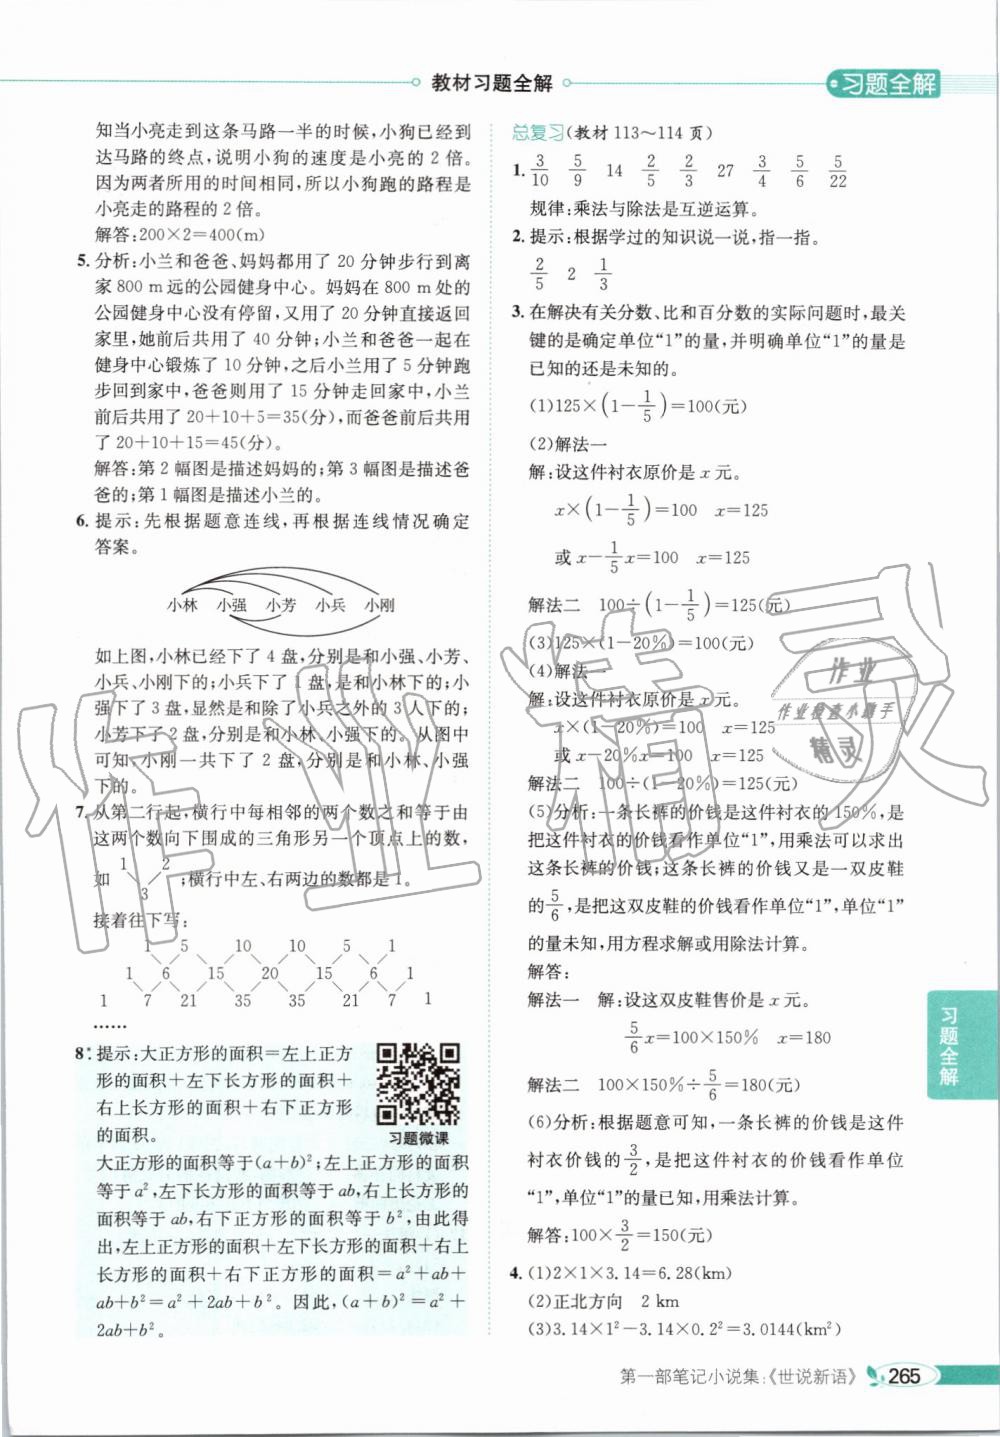 教材习题全解
习题全解
知当小亮走到这条马路一半的时候,小狗已经到
达马路的终点,说明小狗的速度是小亮的 2 倍。
因为两者所用的时间相同,所以小狗跑的路程是
小亮走的路程的 2 倍。
解答:200×2=400(m)
5. 分析:小兰和爸爸、妈妈都用了 20 分钟步行到离
家 800 m 远的公园健身中心。妈妈在 800 m 处的
公园健身中心没有停留,又用了 20 分钟直接返回
家里,她前后共用了 40 分钟;小兰和爸爸一起在
健身中心锻炼了 10 分钟,之后小兰用了 5 分钟跑
步回到家中,爸爸则用了 15 分钟走回家中,小兰
前后共用了 20+10+5=35(分),而爸爸前后共用
了 20+10+15=45(分)。
解答:第 2 幅图是描述妈妈的;第 3 幅图是描述爸
爸的;第 1 幅图是描述小兰的。
6. 提示:先根据题意连线,再根据连线情况确定
答案。
小林 小强 小芳 小兵 小刚
如上图,小林已经下了 4 盘,分别是和小强、小芳、
小兵、小刚下的;小兵下了 1 盘,是和小林下的;小
强下了 3 盘,显然是和除了小兵之外的 3 人下的;
小芳下了 2 盘,分别是和小林、小强下的。从图中
可知,小刚一共下了 2 盘,分别是和小林、小强
下的。
7. 从第二行起,横行中每相邻的两个数之和等于由
这两个数向下围成的三角形另一个顶点上的数,
如 1 2 3 ;横行中左、右两边的数都是 1。
接着往下写:
1 5 10 10 5 1
1 6 15 20 15 6 1
1 7 21 35 35 21 7 1
……
8* 提示:大正方形的面积=左上正方
形的面积+左下长方形的面积+
右上长方形的面积+右下正方形
的面积。
习题微课
大正方形的面积等于(a+b)²;左上正方形的面积
等于 a²,左下长方形的面积等于 ab,右上长方形的
面积等于 ab,右下正方形的面积等于 b²,由此得
出,左上正方形的面积+左下长方形的面积+右上
长方形的面积+右下正方形的面积=a²+ab+
ab+b²=a²+2ab+b²。因此,(a+b)²=a²+
2ab+b²。
总复习(教材 113~114 页)
1. 3/10 5/9 14 2/5 2/3 27 3/4 5/6 5/22
规律:乘法与除法是互逆运算。
2. 提示:根据学过的知识说一说,指一指。
2/5 2 1/3
3. 在解决有关分数、比和百分数的实际问题时,最关
键的是确定单位“1”的量,并明确单位“1”的量是
已知的还是未知的。
(1)125×(1-1/5)=100(元)
(2)解法一
解:设这件衬衣原价是 x 元。
x×(1-1/5)=100 x=125
或 x-1/5x=100 x=125
解法二 100÷(1-1/5)=125(元)
(3)125×(1-20%)=100(元)
(4)解法一
解:设这件衬衣原价是 x 元。
x×(1-20%)=100 x=125
或 x-20%x=100 x=125
解法二 100÷(1-20%)=125(元)
(5)分析:一条长裤的价钱是这件衬衣的 150%,是
把这件衬衣的价钱看作单位“1”,用乘法可以求出
这条长裤的价钱;这条长裤的价钱又是一双皮鞋
的 5/6,是把这双皮鞋的价钱看作单位“1”,单位“1”
的量未知,用方程求解或用除法计算。
解答:
解法一 解:设这双皮鞋售价是 x 元。
5/6x=100×150% x=180
解法二 100×150%÷5/6=180(元)
(6)分析:根据题意可知,一条长裤的价钱是这件
衬衣价钱的 3/2,是把这件衬衣的价钱看作单位
“1”,单位“1”的量已知,用乘法计算。
解答:100×3/2=150(元)
4. (1)2×1×3.14=6.28(km)
(2)正北方向 2 km
(3)3.14×1²-3.14×0.2²=3.0144(km²)
习题全解
第一部笔记小说集:《世说新语》
265
作业精灵
作业
作业检查小助手
精灵